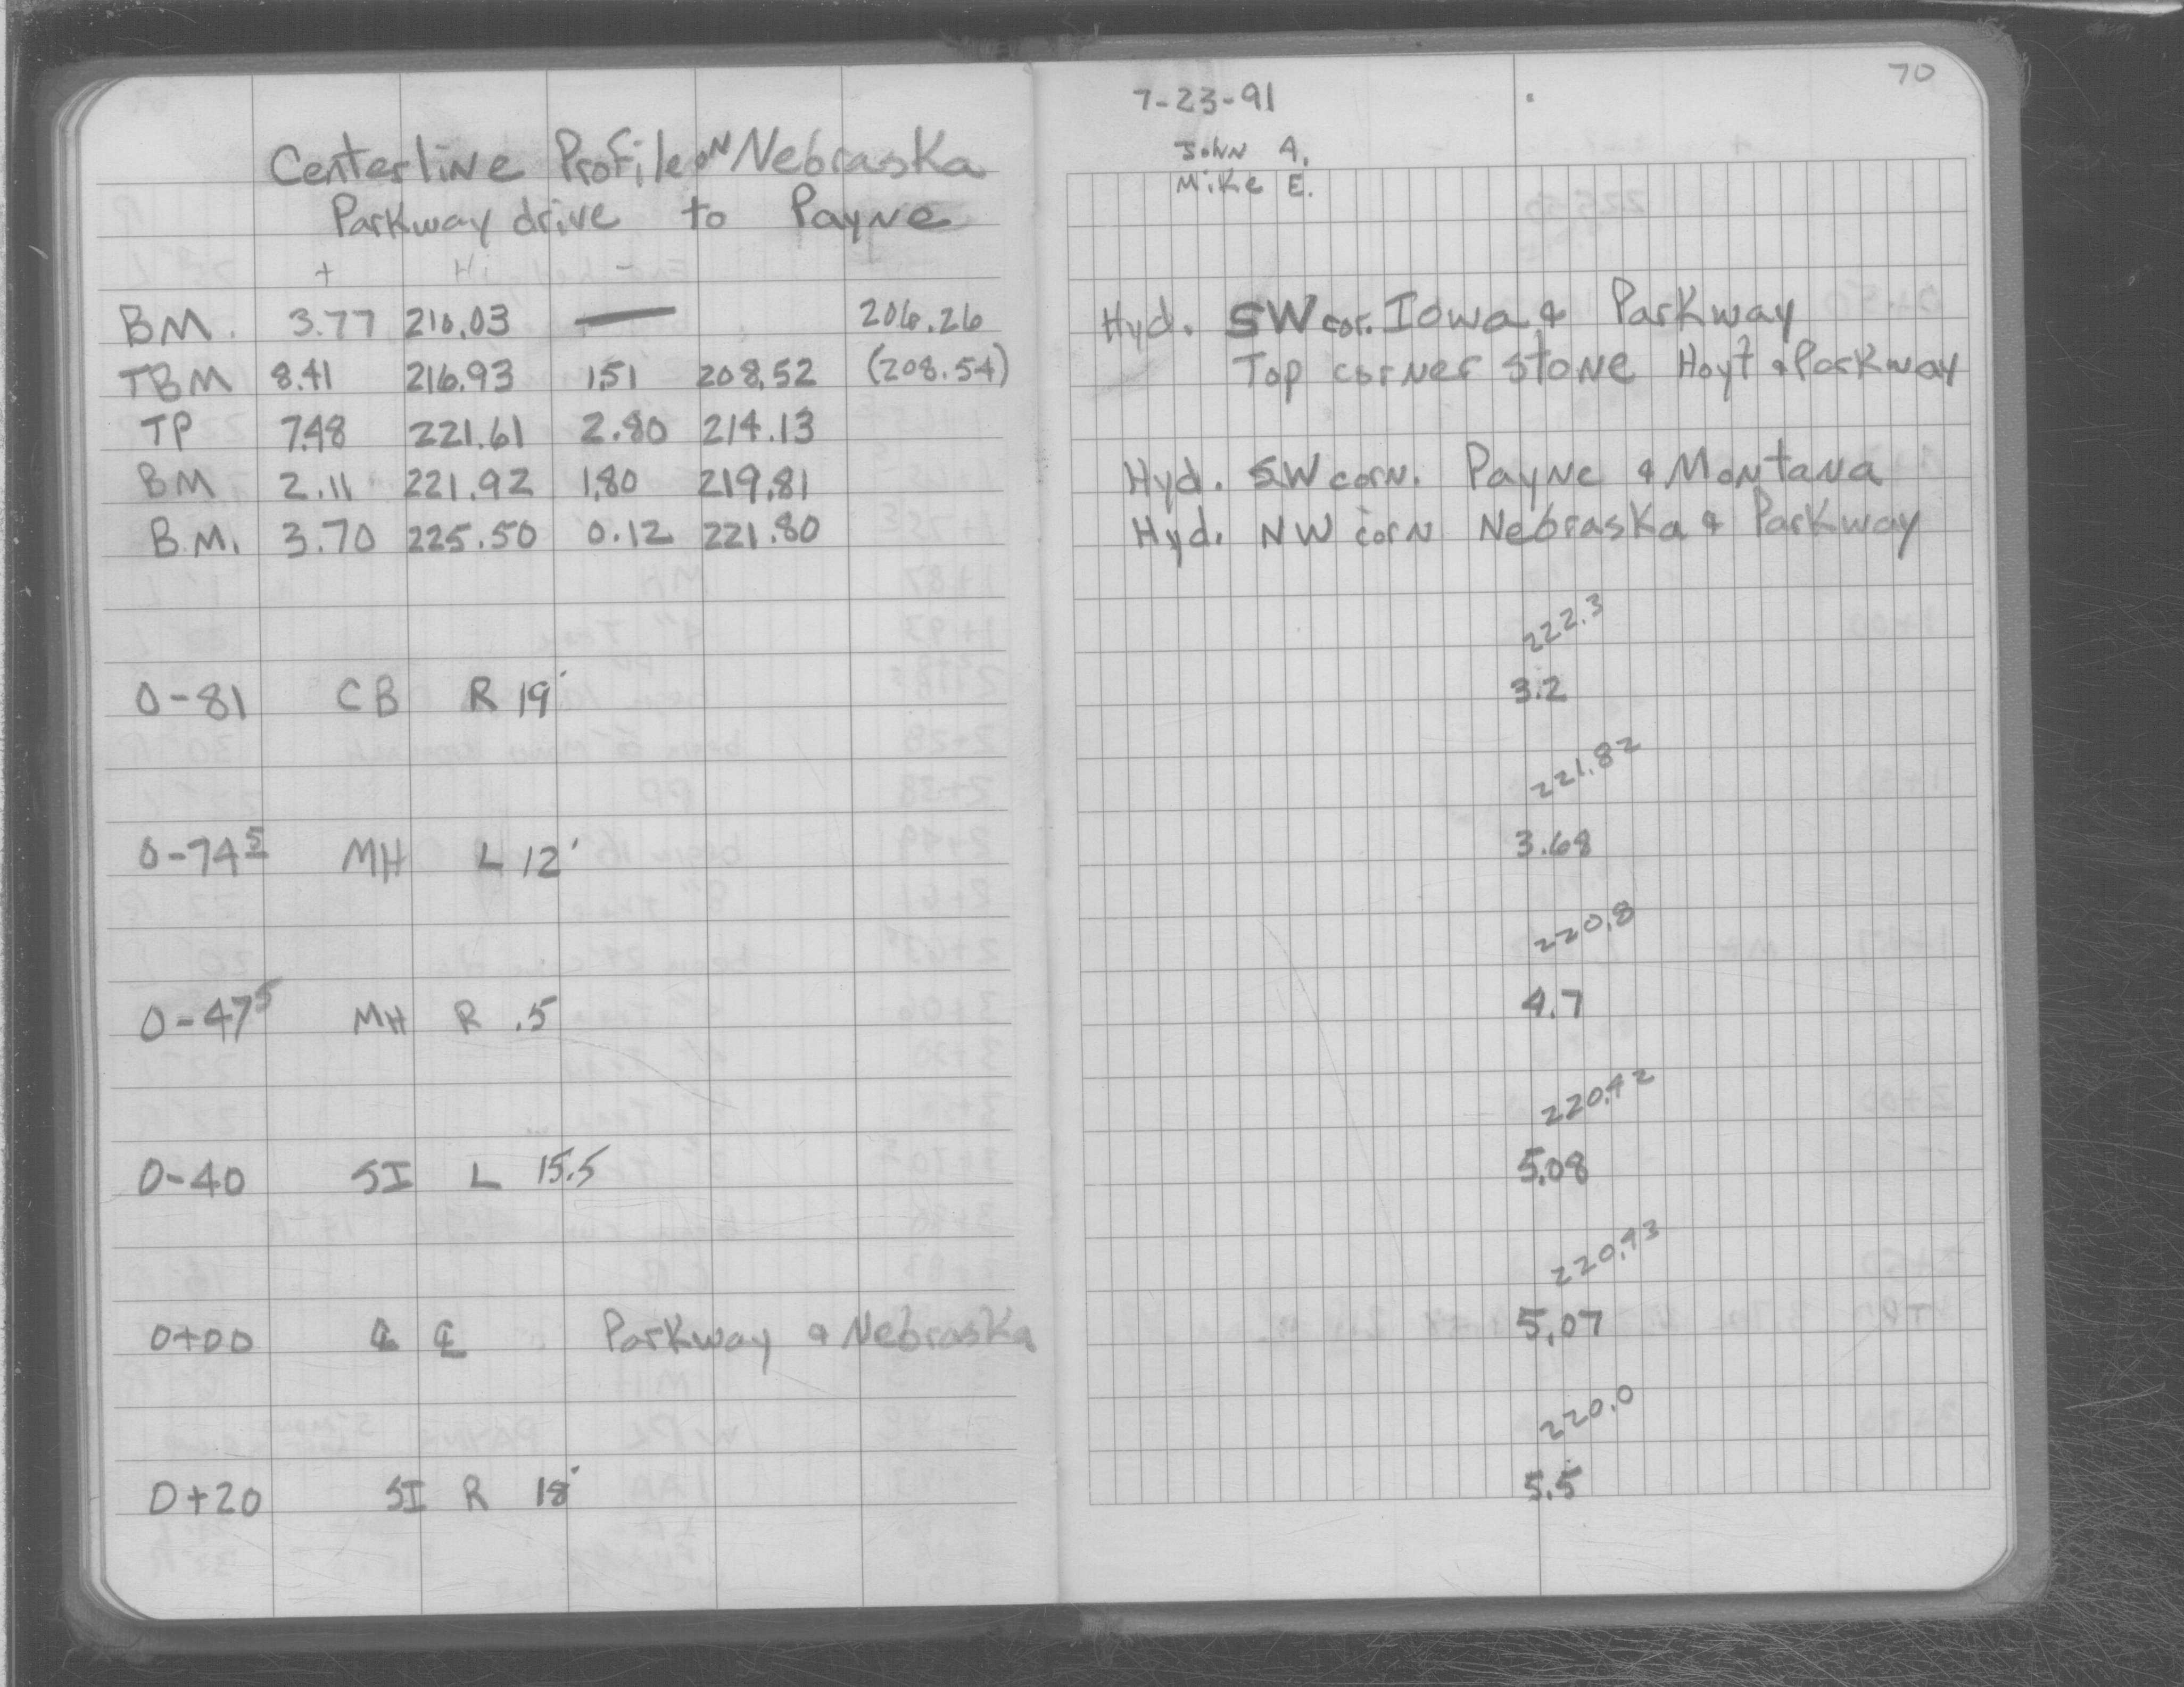 Centerline Profile on Nebraska
Parkway drive to Payne
+ Hi -
BM. 3.77 210.03 — 206.26
TBM 8.41 216.93 1.51 208.52 (208.54)
TP 7.48 221.61 2.80 214.13
BM 2.11 221.92 1.80 219.81
B.M. 3.70 225.50 0.12 221.80
0-81 CB R 19'
0-74 5 MH L 12'
0-47 5 MH R .5
0-40 SI L 15.5
0+00 ℄ ℄ Parkway & Nebraska
0+20 SI R 18'
70
7-23-91
John A.
Mike E.
Hyd. SW cor. Iowa & Parkway
Top corner stone Hoyt & Parkway
Hyd. SW corn. Payne & Montana
Hyd. NW corn Nebraska & Parkway
222.3
3.2
221.82
3.68
220.8
4.7
220.42
5.08
220.43
5.07
220.0
5.5